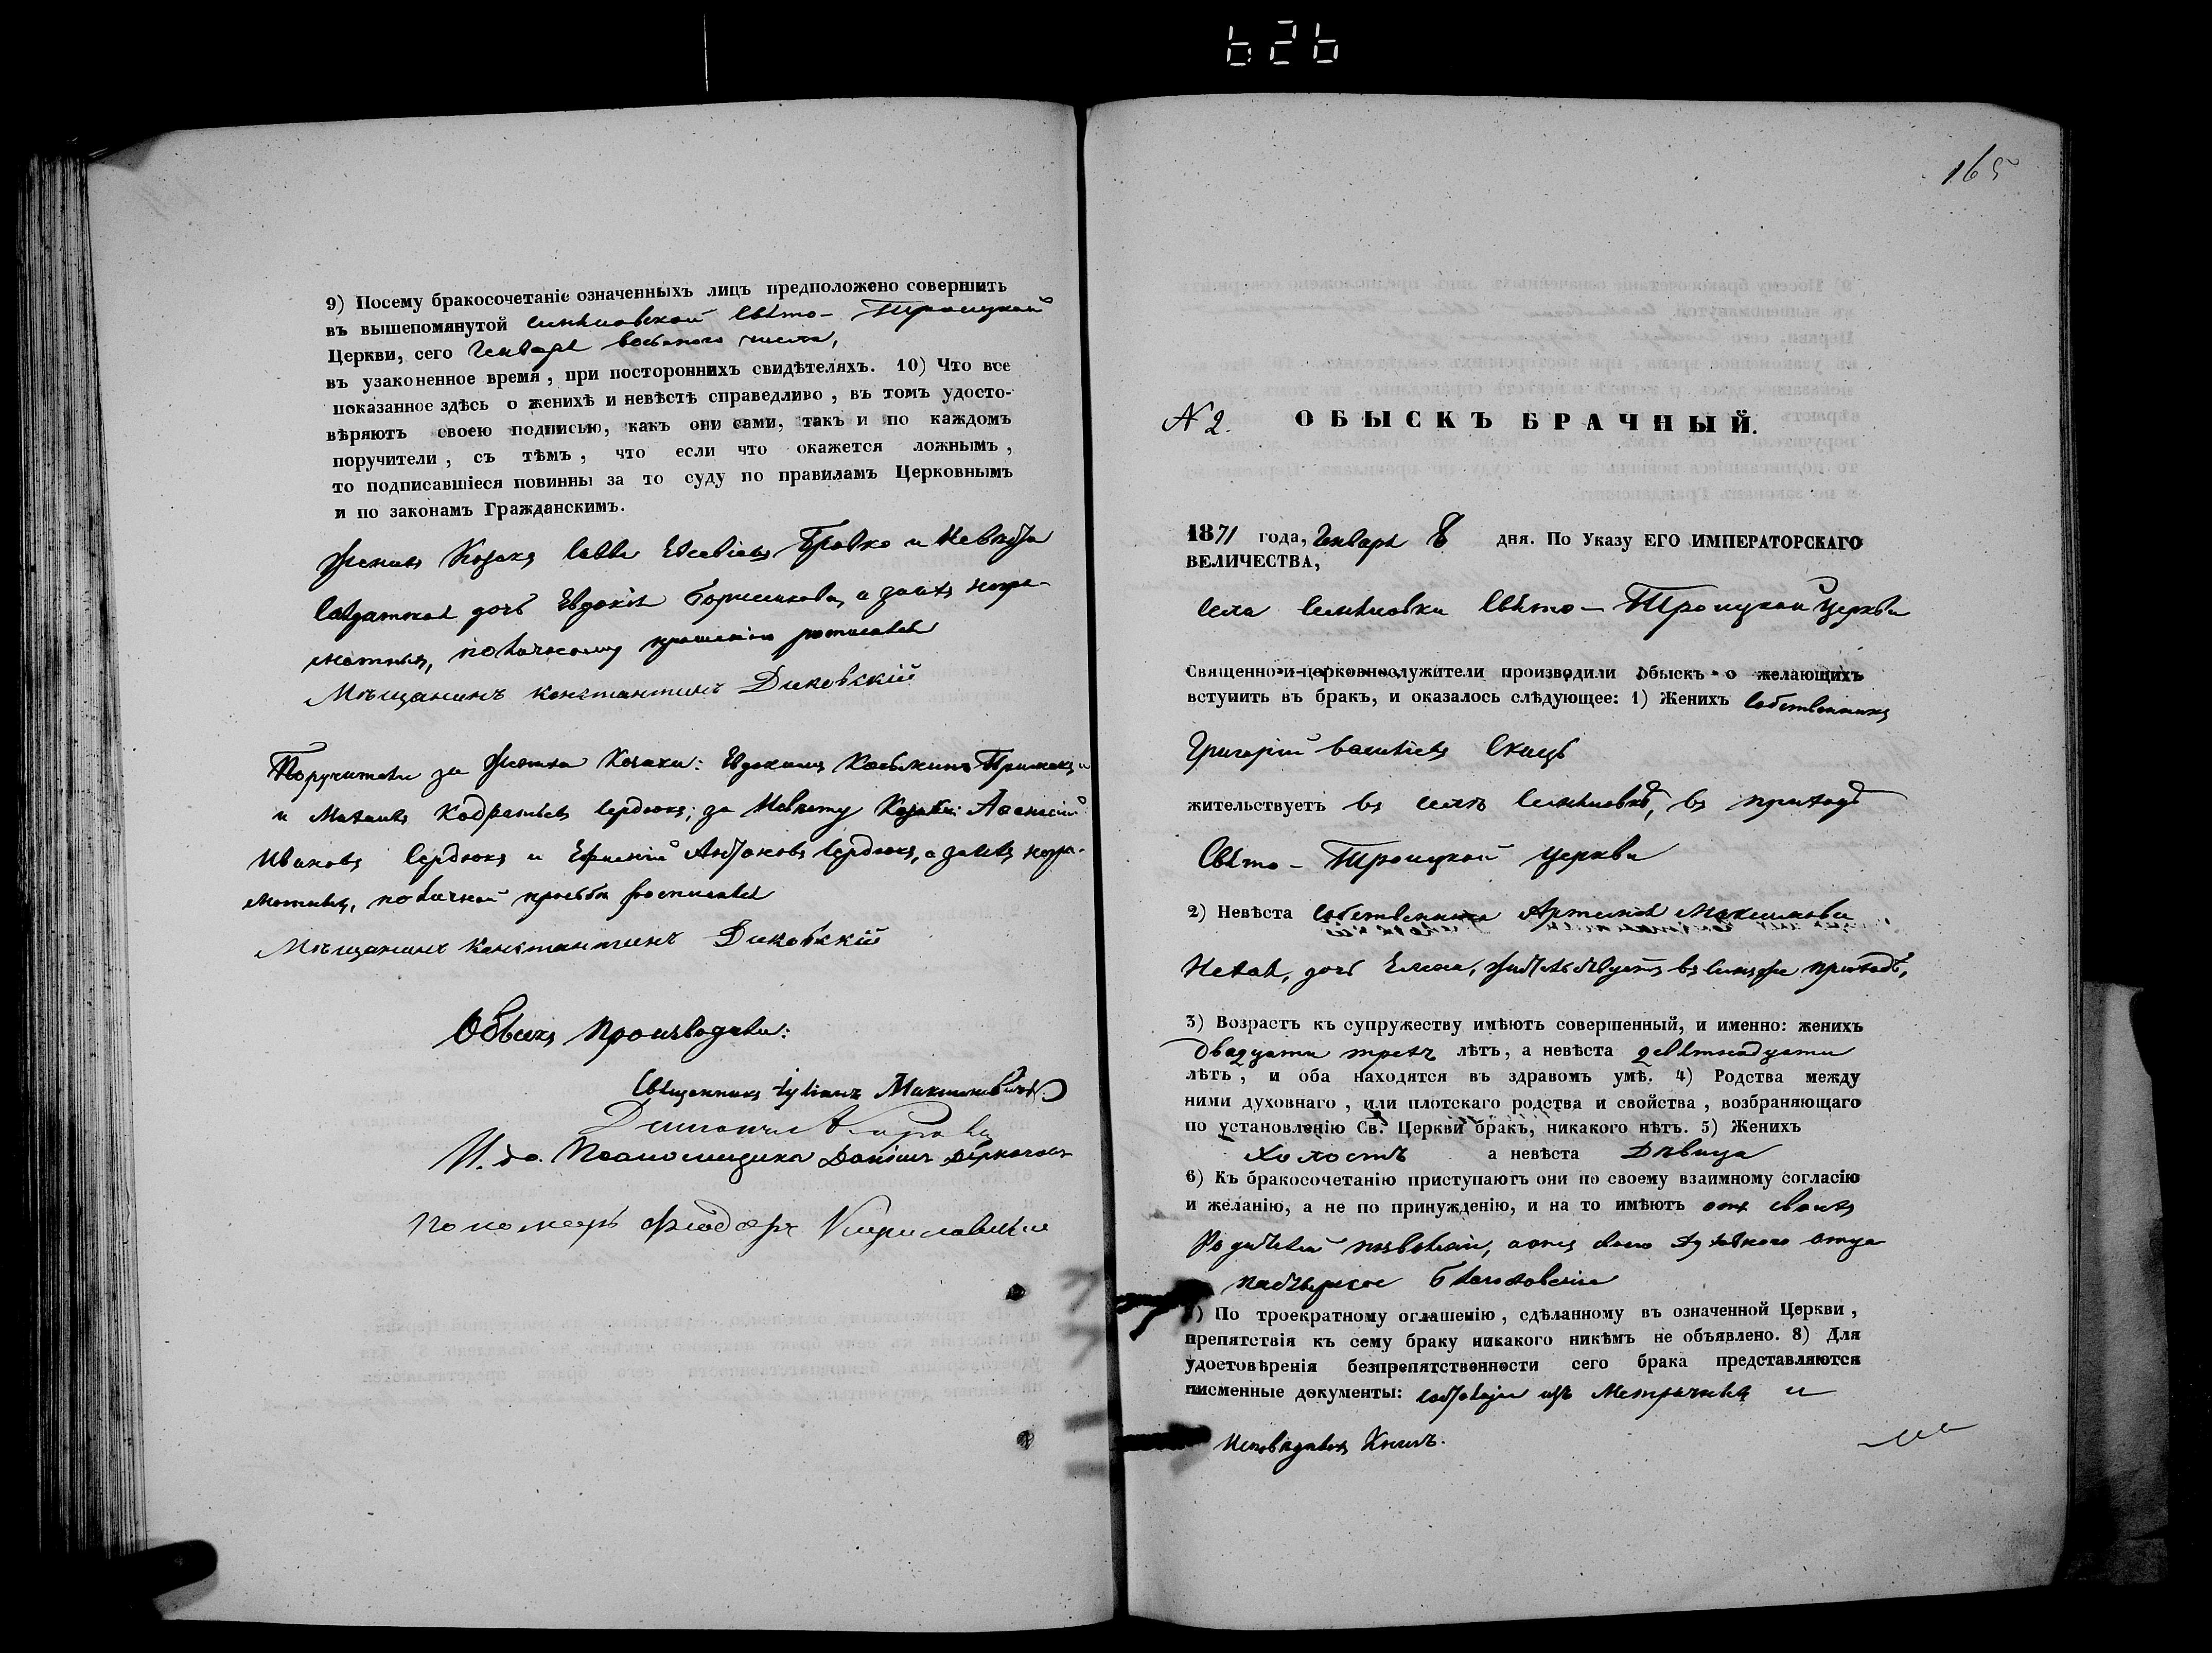 626
9) Посему бракосочетаніе означенныхъ лицъ предположено совершить
въ вышепомянутой Свѣто- Троицкой
Церкви, сего Генваря восьмого числа,
въ узаконенное время, при постороннихъ свидѣтеляхъ. 10) Что все
показанное здѣсь о женихѣ и невѣстѣ справедливо, въ томъ удосто-
вѣряютъ своею подписью, какъ они сами, такъ и по каждомъ
поручители, съ тѣмъ, что если что окажется ложнымъ,
то подписавшіеся повинны за то суду по правиламъ Церковнымъ
и по законамъ Гражданскимъ.
Женихъ Козакъ Савва Евсеевъ и Невѣста
дочь Евдокія Борисикова, а за нихъ негра-
мотныхъ, по личному прошенію росписался
Мѣщанинъ Константинъ Диковскій
Поручители за Жениха Козаки: Евдокимъ Примакъ
и Сердюкъ; за Невѣсту Козаки: Афенасій
Ивановъ Сердюкъ и Антоновъ Сердюкъ, а за нихъ негра-
мотныхъ, по личной просьбѣ росписался
Мѣщанинъ Константинъ Диковскій
Обыскъ Производили:
Священникъ Максимовичъ
И. до. Псаломщика
Пономарь Фіодоръ
165
N 2. ОБЫСКЪ БРАЧНЫЙ.
1871 года, Генваря 8 дня. По Указу ЕГО ИМПЕРАТОРСКАГО
ВЕЛИЧЕСТВА,
Села Свѣто- Троицкой Церкви
Священно-и-церковнослужители производили обыскъ о желающихъ
вступить въ бракъ, и оказалось слѣдующее: 1) Женихъ Собственникъ
Григорій Васильевъ
жительствуетъ въ селѣ въ приходѣ
Свѣто- Троицкой церкви
2) Невѣста Максимова
дочь Елена, жительствуетъ въ приходѣ,
3) Возрастъ къ супружеству имѣютъ совершенный, и именно: женихъ
двадцати трехъ лѣтъ, а невѣста девятнадцати
лѣтъ, и оба находятся въ здравомъ умѣ. 4) Родства между
ними духовнаго, или плотскаго родства и свойства, возбраняющаго
по установленію Св. Церкви бракъ, никакого нѣтъ. 5) Женихъ
Холостъ а невѣста Дѣвица
6) Къ бракосочетанію приступаютъ они по своему взаимному согласію
и желанію, а не по принужденію, и на то имѣютъ отъ своихъ
Родителей позволеніе, а отъ своего духовного отца
пастырское благословеніе
7) По троекратному оглашенію, сдѣланному въ означенной Церкви,
препятствія къ сему браку никакого никѣмъ не объявлено. 8) Для
удостовѣренія безпрепятственности сего брака представляются
писменные документы: изъ Метричныхъ и
Исповѣдныхъ Книгъ.